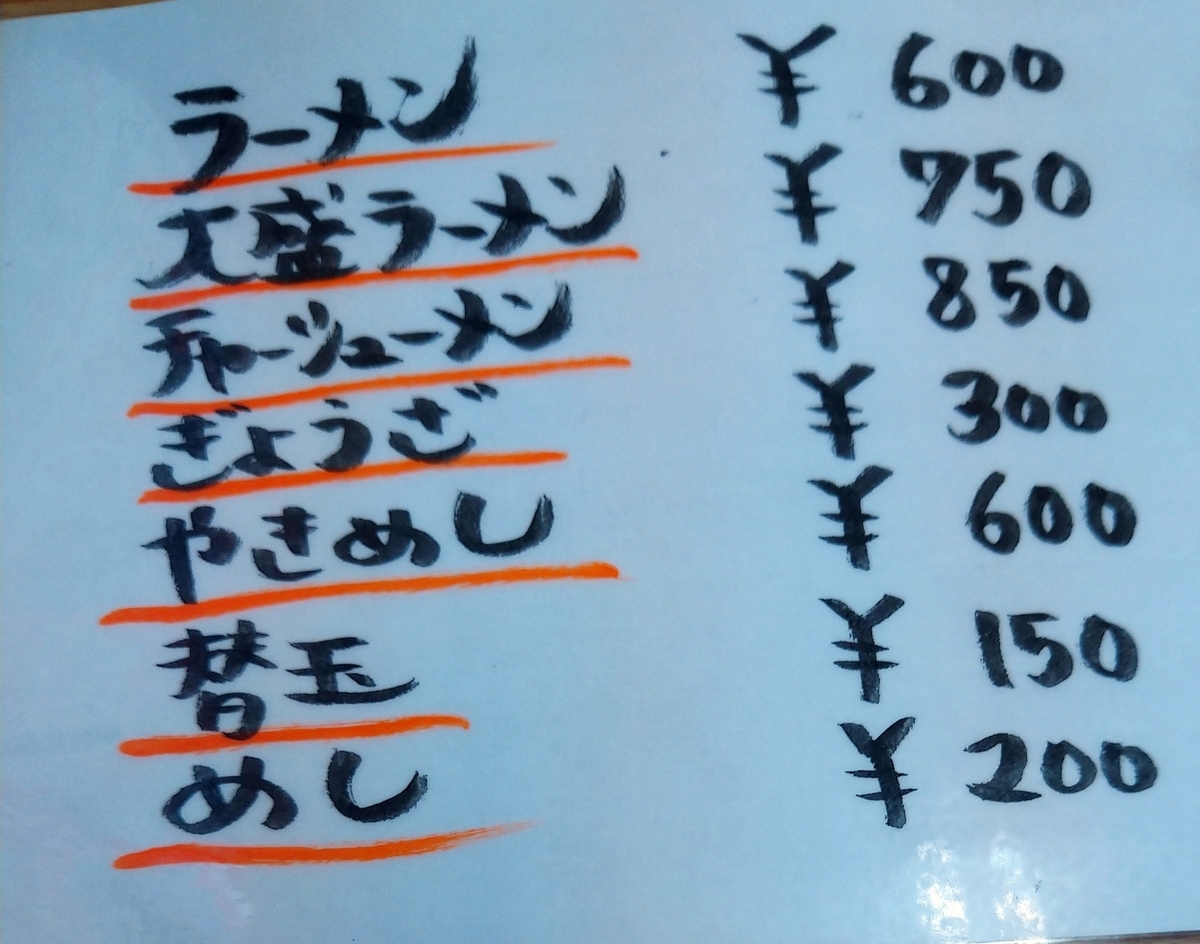 ラーメン ¥600
大盛ラーメン ¥750
チャーシューメン ¥850
ぎょうざ ¥300
やきめし ¥600
替玉 ¥150
めし ¥200